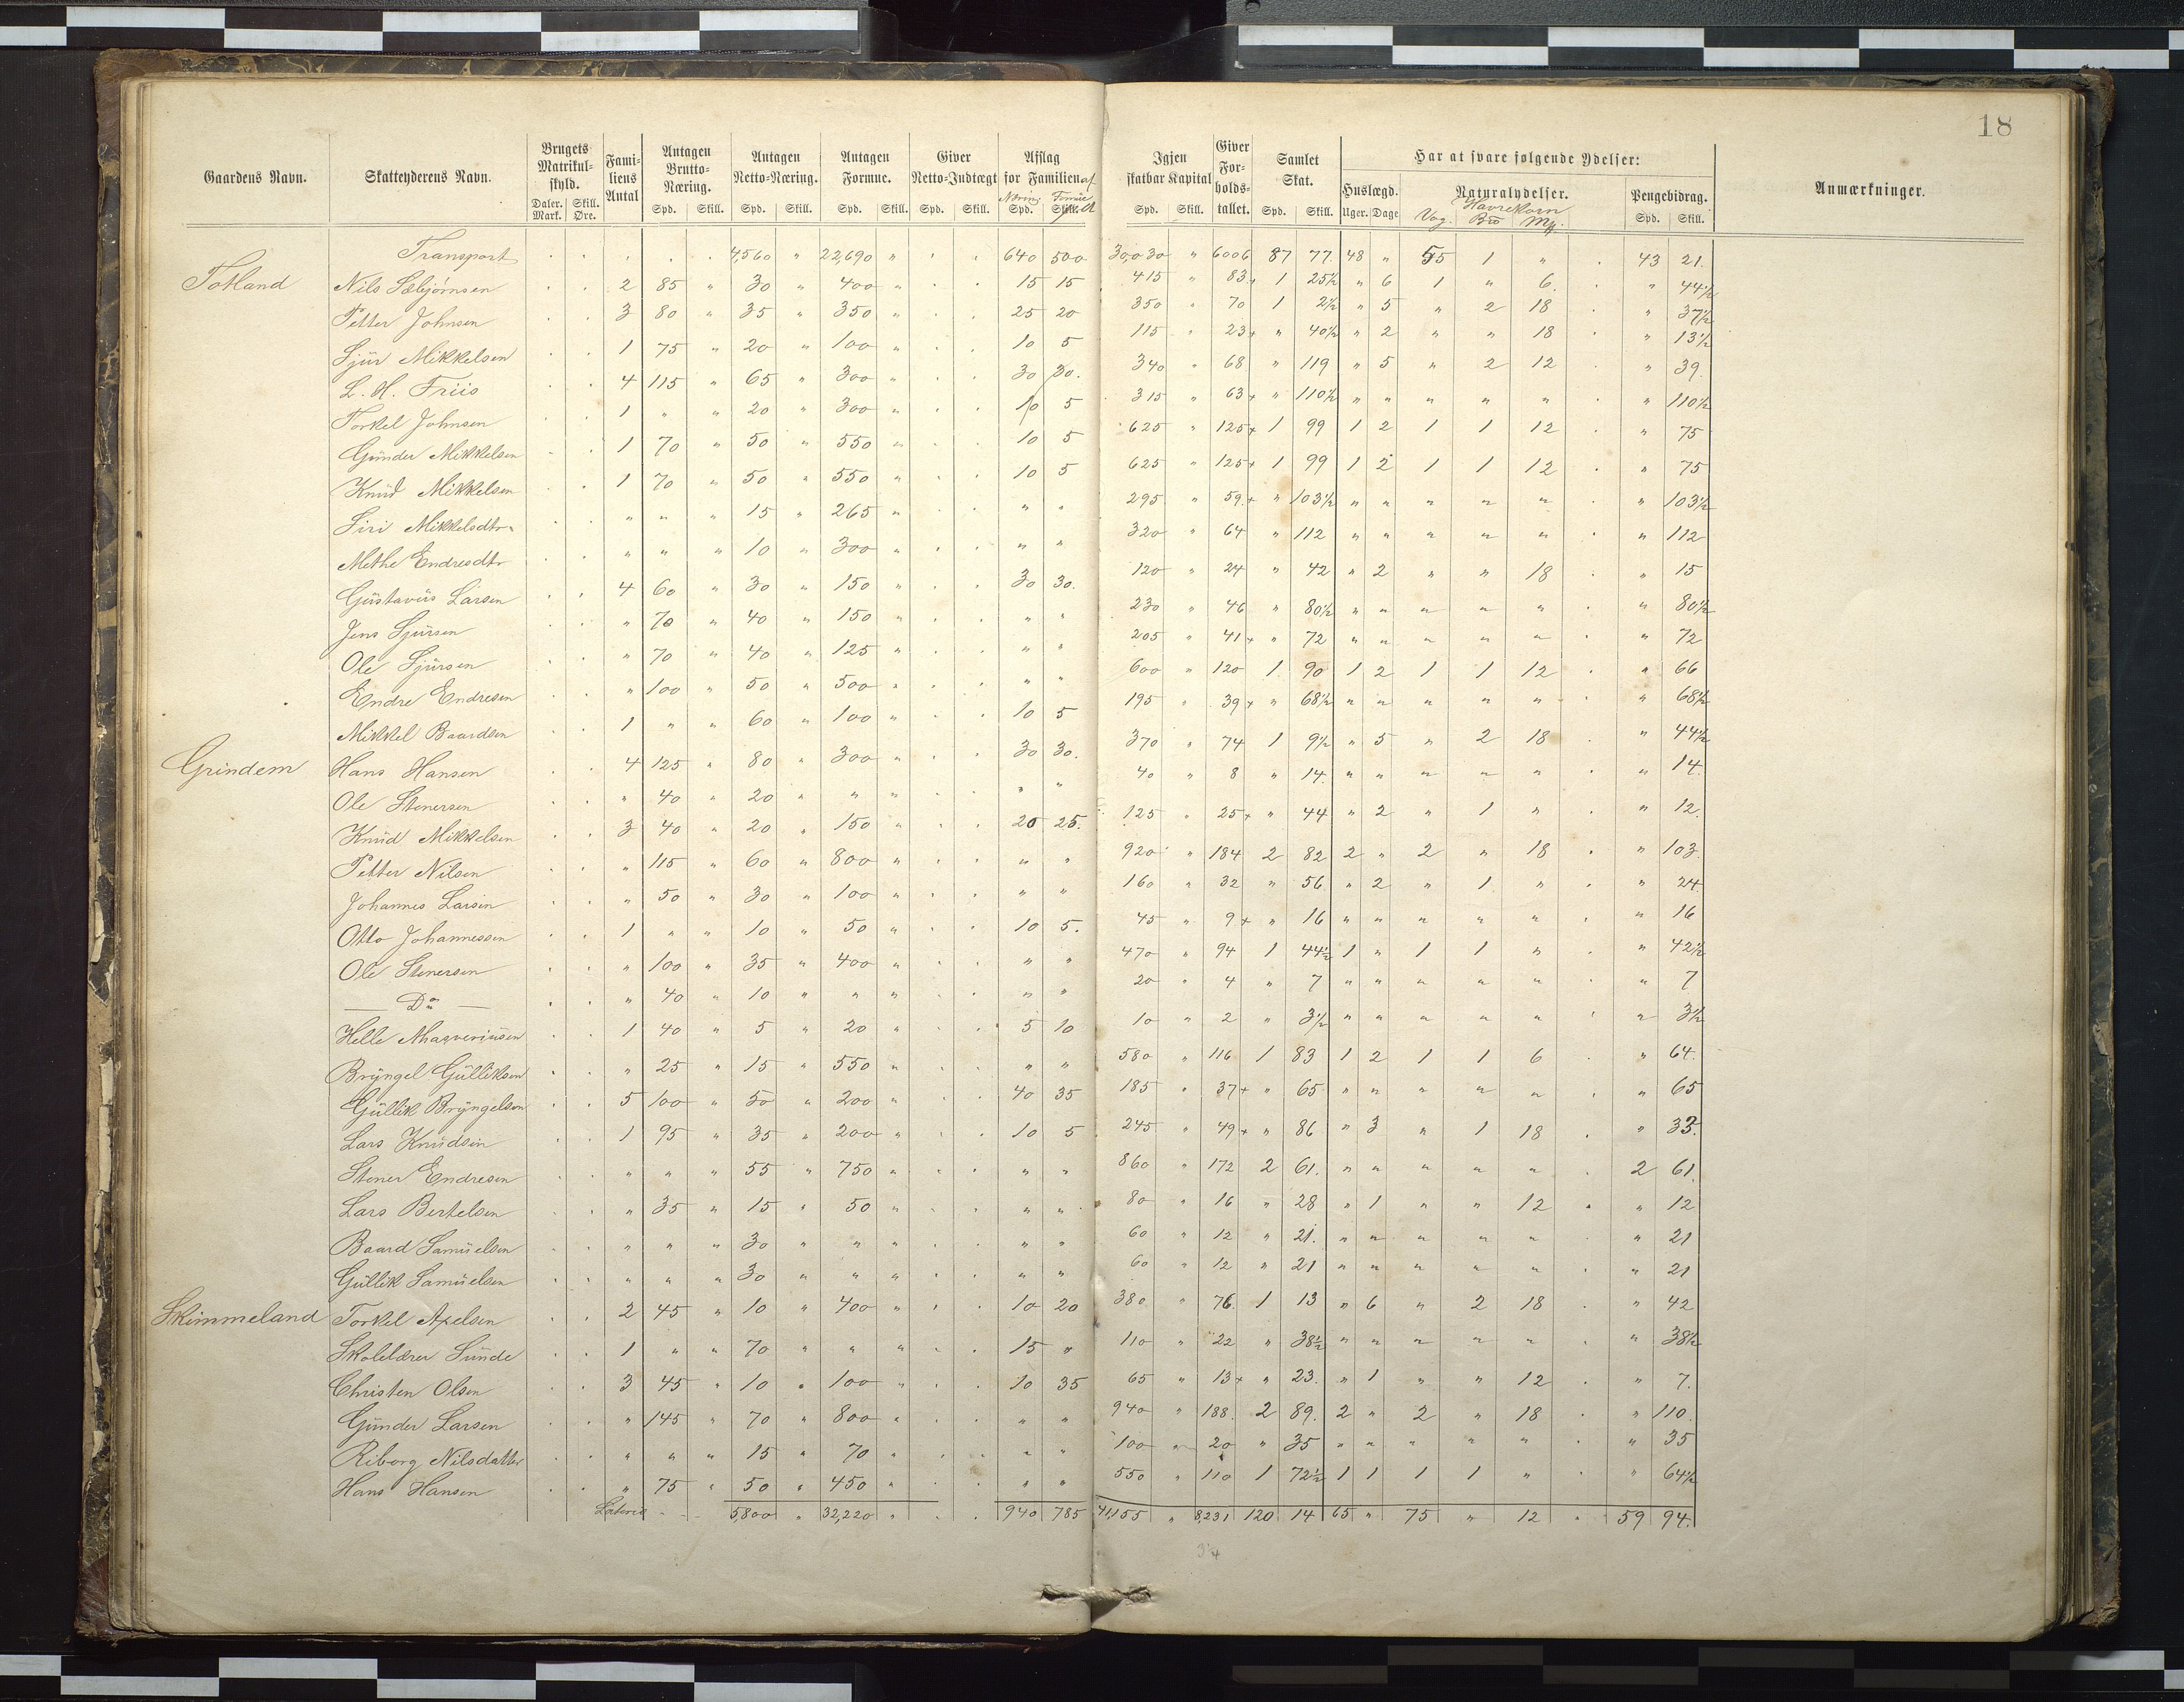 18
Gaardens Navn. Skatteyderens Navn. Brugets Matrikul-skyld. Daler. Mark. Skill. Øre. Familiens Antal Antagen Brutto-Næring. Spd. Skill. Antagen Netto-Næring. Spd. Skill. Antagen Formue. Spd. Skill. Giver Netto-Indtægt Spd. Skill. Afslag for Familien af Næring Spd. Formue Skill. Igjen skatbar Kapital Spd. Skill. Giver Forholdstallet. Samlet Skat. Spd. Skill. Har at svare følgende Ydelser: Huslægd. Uger. Dage Naturalydelser. Havrekorn Vog. Bd Mk. Pengebidrag. Spd. Skill. Anmærkninger.
Transport . . . . . 4,560 " 22,690 " . . 640 500 30,030 " 6006 87 77. 48 " 55 1 " . 43 21.
Totland Nils Sæbjørnsen . . 2 85 " 30 " 400 " . . 15 15 415 " 83+ 1 25½ " 6 1 " 6. . " 44½
Petter Johnsen . . 3 80 " 35 " 350 " . . 25 20 350 " 70 1 2½ " 5 " 2 18 . " 37½
Sjur Mikkelsen . . 1 75 " 20 " 100 " . . 10 5 115 " 23+ " 40½ " 2 " " 18 . " 13½
L. H. Friis . . 4 115 " 65 " 300 " . . 30 30. 340 " 68 " 119 " 5 " 2 12 . " 39.
Torkel Johnsen . . 1 " " 20 " 300 " . . 10 5 315 " 63+ " 110½ " " " " " . " 110½
Gunder Mikkelsen . . 1 70 " 50 " 550 " . . 10 5 625 " 125+ 1 99 1 2 1 1 12 . " 75
Knud Mikkelsen . . 1 70 " 50 " 550 " . . 10 5 625 " 125+ 1 99 1 2 1 1 12 . " 75
Siri Mikkelsdtr . . " " " 15 " 265 " . . " " 295 " 59+ " 103½ " " " " " . " 103½
Methe Endresdtr . . " " " 10 " 300 " . . " " 320 " 64 " 112 " " " " " . " 112
Gustavus Larsen . . 4 60 " 30 " 150 " . . 30 30. 120 " 24 " 42 " 2 " " 18 . " 15
Jens Sjursen . . " 70 " 40 " 150 " . . " " 230 " 46 " 80½ " " " " " . " 80½
Ole Sjursen . . " 70 " 40 " 125 " . . " " 205 " 41+ " 72 " " " " " . " 72
Endre Endresen . . " 100 " 50 " 500 " . . " " 600 " 120 1 90 1 2 1 1 12 . " 66
Mikkel Baardsen . . 1 " " 60 " 100 " . . 10 5 195 " 39+ " 68½ " " " " " . " 68½
Grindem Hans Hansen . . 4 125 " 80 " 300 " . . 30 30. 370 " 74 1 9½ " 5 " 2 18 . " 44½
Ole Stenersen . . " 40 " 20 " " " . . " " 40 " 8 " 14. " " " " " . " 14.
Knud Mikkelsen . . 3 40 " 20 " 150 " . . 20 25. 125 " 25+ " 44 " 2 " 1 " . " 12.
Petter Nilsen . . " 115 " 60 " 800 " . . " " 920 " 184 2 82 2 " 2 " 18 . " 103.
Johannes Larsen . . " 50 " 30 " 100 " . . " " 160 " 32 " 56 " 2 " 1 " . " 24
Otto Johannessen . . 1 " " 10 " 50 " . . 10 5. 45 " 9+ " 16 " " " " " . " 16
Ole Stenersen . . " 100 " 35 " 400 " . . " " 470 " 94 1 44½ 1 " 1 1 " . " 42½
— Do — . . " 40 " 10 " " " . . " " 20 " 4 " 7 " " " " " . " 7
Helle . . 1 40 " 5 " 20 " . . 5 10 10 " 2 " 3½ " " " " " . " 3½
Bryngel Gulliksen . . " 25 " 15 " 550 " . . " " 580 " 116 1 83 1 2 1 1 6 . " 64.
Gullik Bryngelsen . . 5 100 " 50 " 200 " . . 40 35 185 " 37+ " 65 " " " " " . " 65
Lars Knudsen . . 1 95 " 35 " 200 " . . 10 5 245 " 49+ " 86 " 3 " 1 18 . " 33.
Stener Endresen . . " " " 55 " 750 " . . " " 860 " 172 2 61. " " " " " . 2 61
Lars Bertelsen . . " 35 " 15 " 50 " . . " " 80 " 16 " 28 " 1 " " 12 . " 12
Baard Samuelsen . . " " " 30 " " " . . " " 60 " 12 " 21. " " " " " . " 21
Gullik Samuelsen . . " " " 30 " " " . . " " 60 " 12 " 21 " " " " " . " 21
Skimmeland Torkel Axelsen . . 2 45 " 10 " 400 " . . 10 20 380 " 76. 1 13 " 6 " 2 18 . " 42
Skolelærer Sunde . . 1 " " 70 " " " . . 15 " 110 " 22 " 38½ " " " " " . " 38½
Christen Olsen . . 3 45 " 10 " 100 " . . 10 35 65 " 13+ " 23. " 1 " " 12 . " 7.
Gunder Larsen . . " 145 " 70 " 800 " . . " " 940 " 188. 2 89. 2 " 2 " 18 . " 110.
Riborg Nilsdatter . . " " " 15 " 70 " . . " " 100 " 20 " 35 " " " " " . " 35
Hans Hansen . . " 75 " 50 " 450 " . . " " 550 " 110 1 72½ 1 1 1 1 " . " 64½
Lateris 5,800 " 32,220 " . . 940 785 41,155 " 8,231 120 14 65 " 75 " 12 . 59 94.